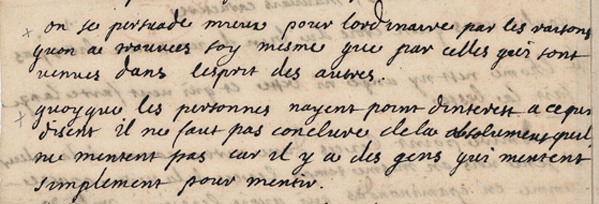 + on se persuade mieux pour lordinaire par les raisons
quon a trouvees soy mesme que par celles qui sont
venues dans lesprit des autres.
+ quoyque les personnes nayent point dinterest a ce qui
disent il ne faut pas conclure dela absolument quil
ne mentent pas car il y a des gens qui mentent
simplement pour mentir.